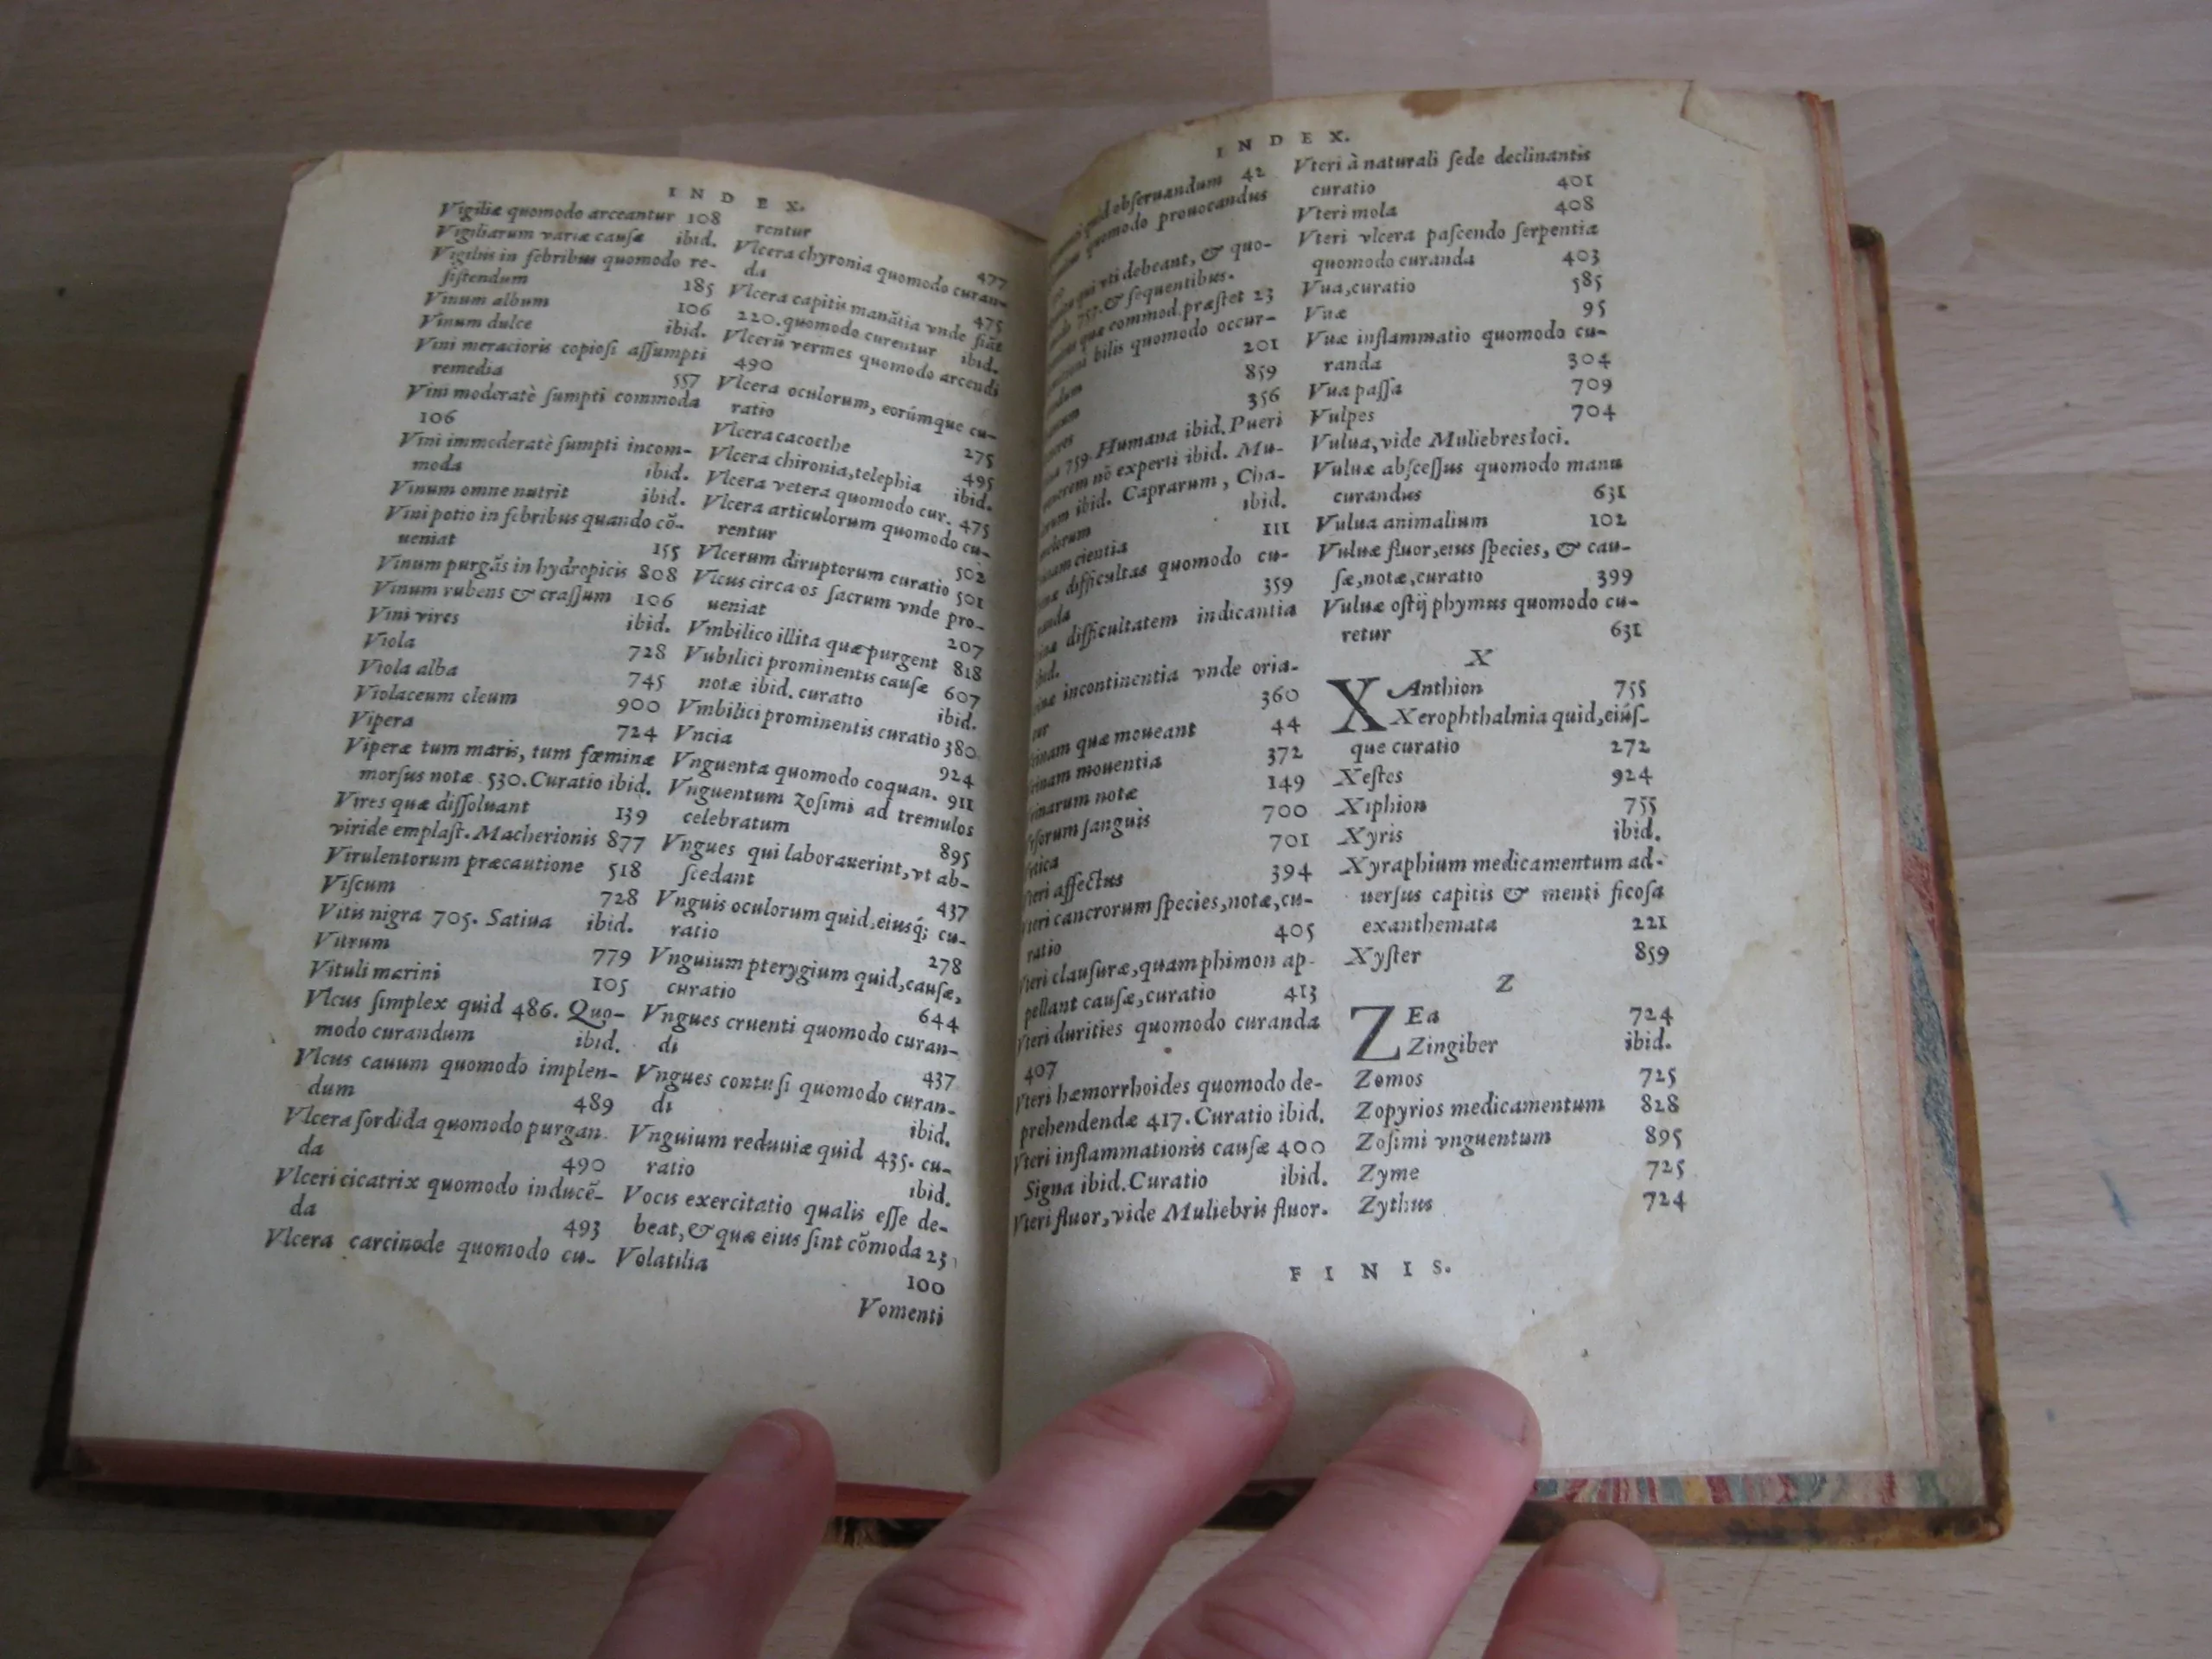 INDEX.
Vigiliæ quomodo arceantur 108
Vigiliarum variæ causæ ibid.
Vigiliis in febribus quomodo re-
sistendum 185
Vinum album 106
Vinum dulce ibid.
Vini meracioris copiosi assumpti
remedia 557
Vini moderatè sumpti commoda
106
Vini immoderatè sumpti incom-
moda ibid.
Vinum omne nutrit ibid.
Vini potio in febribus quando cõ-
ueniat 155
Vinum purgãs in hydropicis 808
Vinum rubens & crassum 106
Vini vires ibid.
Viola 728
Viola alba 745
Violaceum oleum 900
Vipera 724
Viperæ tum maris, tum fœminæ
morsus notæ 530. Curatio ibid.
Vires quæ dissoluant 139
viride emplast. Macherionis 877
Virulentorum præcautione 518
Viscum 728
Vitis nigra 705. Satiua ibid.
Vitrum 779
Vituli marini 105
Vlcus simplex quid 486. Quo-
modo curandum ibid.
Vlcus cauum quomodo implen-
dum 489
Vlcera sordida quomodo purgan-
da 490
Vlceri cicatrix quomodo inducẽ-
da 493
Vlcera carcinode quomodo cu-
rentur 477
Vlcera chyronia quomodo curan-
da 475
Vlcera capitis manãtia vnde fiãt
220. quomodo curentur ibid.
Vlcerũ vermes quomodo arcendi
490
Vlcera oculorum, eorúmque cu-
ratio 275
Vlcera cacoethe 495
Vlcera chironia, telephia ibid.
Vlcera vetera quomodo cur. 475
Vlcera articulorum quomodo cu-
rentur 502
Vlcerum diruptorum curatio 501
Vlcus circa os sacrum vnde pro-
ueniat 207
Vmbilico illita quæ purgent 818
Vubilici prominentis causæ 607
notæ ibid. curatio ibid.
Vmbilici prominentis curatio 380
Vncia 924
Vnguenta quomodo coquan. 911
Vnguentum Zosimi ad tremulos
celebratum 895
Vngues qui laborauerint, vt ab-
scedant 437
Vnguis oculorum quid, eiusq́; cu-
ratio 278
Vnguium pterygium quid, causæ,
curatio 644
Vngues cruenti quomodo curan-
di 437
Vngues contusi quomodo curan-
di ibid.
Vnguium reduuiæ quid 435. cu-
ratio ibid.
Vocis exercitatio qualis esse de-
beat, & quæ eius sint cõmoda 23
Volatilia 100
Vomenti
INDEX.
quid obseruandum 42
quomodo prouocandus
qui vti debeant, & quo-
757. & sequentibus.
quæ commod. præstet 23
bilis quomodo occur-
201
859
356
759. Humana ibid. Pueri
nõ experti ibid. Mu-
ibid. Caprarum, Cha-
ibid.
cientia 111
difficultas quomodo cu-
359
difficultatem indicantia
ibid.
incontinentia vnde oria-
tur 360
quæ moueant 44
mouentia 372
notæ 149
sanguis 700
701
Vteri affectus 394
Vteri cancrorum species, notæ, cu-
ratio 405
Vteri clausuræ, quam phimon ap-
pellant causæ, curatio 413
Vteri durities quomodo curanda
407
Vteri hæmorrhoides quomodo de-
prehendendæ 417. Curatio ibid.
Vteri inflammationis causæ 400
Signa ibid. Curatio ibid.
Vteri fluor, vide Muliebris fluor.
Vteri à naturali sede declinantis
curatio 401
Vteri mola 408
Vteri vlcera pascendo serpentia
quomodo curanda 403
Vua, curatio 585
Vuæ 95
Vuæ inflammatio quomodo cu-
randa 304
Vua passa 709
Vulpes 704
Vulua, vide Muliebres loci.
Vuluæ abscessus quomodo manu
curandus 631
Vulua animalium 102
Vuluæ fluor, eius species, & cau-
sæ, notæ, curatio 399
Vuluæ ostij phymus quomodo cu-
retur 631
X
XAnthion 755
Xerophthalmia quid, eiús-
que curatio 272
Xestes 924
Xiphion 755
Xyris ibid.
Xyraphium medicamentum ad-
uersus capitis & menti ficosa
exanthemata 221
Xyster 859
Z
ZEa 724
Zingiber ibid.
Zomos 725
Zopyrios medicamentum 828
Zosimi vnguentum 895
Zyme 725
Zythus 724
FINIS.